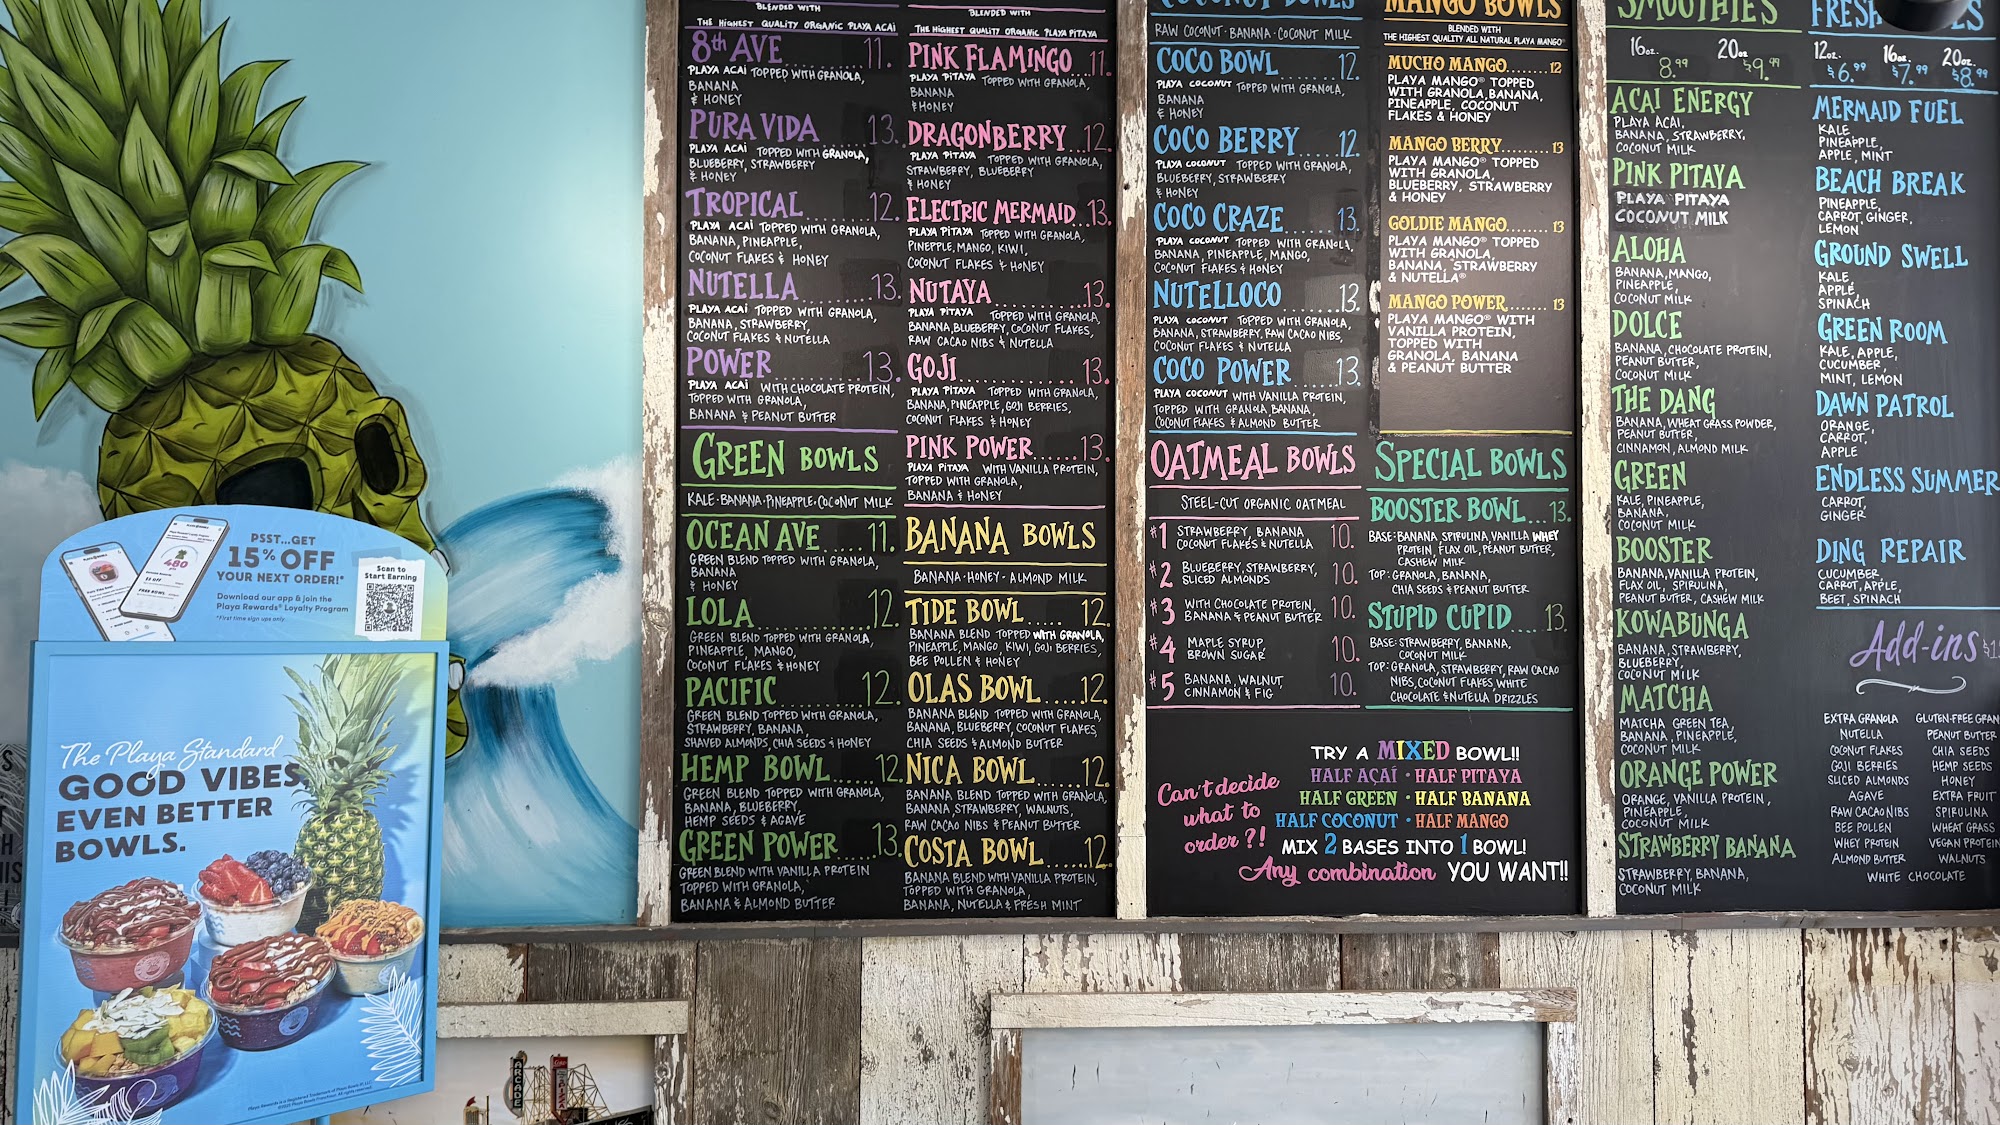 PSST...GET
15% OFF
YOUR NEXT ORDER!*
Download our app & join the
Playa Rewards® Loyalty Program
*First time sign ups only
Scan to
Start Earning
480
The Playa Standard
GOOD VIBES,
EVEN BETTER
BOWLS.
BLENDED WITH
THE HIGHEST QUALITY ORGANIC PLAYA ACAI
8th AVE 11.
PLAYA ACAI TOPPED WITH GRANOLA,
BANANA
& HONEY
PURA VIDA 13.
PLAYA ACAI TOPPED WITH GRANOLA,
BLUEBERRY, STRAWBERRY
& HONEY
TROPICAL....... 12.
PLAYA ACAI TOPPED WITH GRANOLA,
BANANA, PINEAPPLE,
COCONUT FLAKES & HONEY
NUTELLA....... 13.
PLAYA ACAI TOPPED WITH GRANOLA,
BANANA, STRAWBERRY,
COCONUT FLAKES & NUTELLA
POWER......... 13.
PLAYA ACAI WITH CHOCOLATE PROTEIN,
TOPPED WITH GRANOLA,
BANANA & PEANUT BUTTER
GREEN BOWLS
KALE·BANANA·PINEAPPLE·COCONUT MILK
OCEAN AVE..... 11.
GREEN BLEND TOPPED WITH GRANOLA,
BANANA
& HONEY
LOLA 12.
GREEN BLEND TOPPED WITH GRANOLA,
PINEAPPLE, MANGO,
COCONUT FLAKES & HONEY
PACIFIC 12.
GREEN BLEND TOPPED WITH GRANOLA,
STRAWBERRY, BANANA,
SHAVED ALMONDS, CHIA SEEDS & HONEY
HEMP BOWL...... 12.
GREEN BLEND TOPPED WITH GRANOLA,
BANANA, BLUEBERRY,
HEMP SEEDS & AGAVE
GREEN POWER 13.
GREEN BLEND WITH VANILLA PROTEIN
TOPPED WITH GRANOLA,
BANANA & ALMOND BUTTER
BLENDED WITH
THE HIGHEST QUALITY ORGANIC PLAYA PITAYA
PINK FLAMINGO 11.
PLAYA PITAYA TOPPED WITH GRANOLA,
BANANA
& HONEY
DRAGONBERRY 12.
PLAYA PITAYA TOPPED WITH GRANOLA,
STRAWBERRY, BLUEBERRY
& HONEY
ELECTRIC MERMAID 13.
PLAYA PITAYA TOPPED WITH GRANOLA,
PINEPPLE, MANGO, KIWI,
COCONUT FLAKES & HONEY
NUTAYA 13.
PLAYA PITAYA TOPPED WITH GRANOLA,
BANANA, BLUEBERRY, COCONUT FLAKES,
RAW CACAO NIBS & NUTELLA
GOJI 13.
PLAYA PITAYA TOPPED WITH GRANOLA,
BANANA, PINEAPPLE, GOJI BERRIES,
COCONUT FLAKES & HONEY
PINK POWER..... 13.
PLAYA PITAYA WITH VANILLA PROTEIN,
TOPPED WITH GRANOLA,
BANANA & HONEY
BANANA BOWLS
BANANA·HONEY·ALMOND MILK
TIDE BOWL..... 12.
BANANA BLEND TOPPED WITH GRANOLA,
PINEAPPLE, MANGO, KIWI, GOJI BERRIES,
BEE POLLEN & HONEY
OLAS BOWL.... 12.
BANANA BLEND TOPPED WITH GRANOLA,
BANANA, BLUEBERRY, COCONUT FLAKES,
CHIA SEEDS & ALMOND BUTTER
NICA BOWL..... 12.
BANANA BLEND TOPPED WITH GRANOLA,
BANANA, STRAWBERRY, WALNUTS,
RAW CACAO NIBS & PEANUT BUTTER
COSTA BOWL.... 12.
BANANA BLEND WITH VANILLA PROTEIN,
TOPPED WITH GRANOLA,
BANANA, NUTELLA & FRESH MINT
COCONUT BOWLS
RAW COCONUT·BANANA·COCONUT MILK
COCO BOWL 12.
PLAYA COCONUT TOPPED WITH GRANOLA,
BANANA
& HONEY
COCO BERRY 12.
PLAYA COCONUT TOPPED WITH GRANOLA,
BLUEBERRY, STRAWBERRY
& HONEY
COCO CRAZE 13.
PLAYA COCONUT TOPPED WITH GRANOLA,
BANANA, PINEAPPLE, MANGO,
COCONUT FLAKES & HONEY
NUTELLOCO 13.
PLAYA COCONUT TOPPED WITH GRANOLA,
BANANA, STRAWBERRY, RAW CACAO NIBS,
COCONUT FLAKES & NUTELLA
COCO POWER 13.
PLAYA COCONUT WITH VANILLA PROTEIN,
TOPPED WITH GRANOLA, BANANA,
COCONUT FLAKES & ALMOND BUTTER
OATMEAL BOWLS
STEEL-CUT ORGANIC OATMEAL
#1 STRAWBERRY, BANANA 10.
COCONUT FLAKES & NUTELLA
#2 BLUEBERRY, STRAWBERRY, 10.
SLICED ALMONDS
#3 WITH CHOCOLATE PROTEIN, 10.
BANANA & PEANUT BUTTER
#4 MAPLE SYRUP, 10.
BROWN SUGAR
#5 BANANA, WALNUT, 10.
CINNAMON & FIG
MANGO BOWLS
BLENDED WITH
THE HIGHEST QUALITY ALL NATURAL PLAYA MANGO®
MUCHO MANGO........ 12
PLAYA MANGO® TOPPED
WITH GRANOLA, BANANA,
PINEAPPLE, COCONUT
FLAKES & HONEY
MANGO BERRY......... 13
PLAYA MANGO® TOPPED
WITH GRANOLA,
BLUEBERRY, STRAWBERRY
& HONEY
GOLDIE MANGO........ 13
PLAYA MANGO® TOPPED
WITH GRANOLA,
BANANA, STRAWBERRY
& NUTELLA®
MANGO POWER........ 13
PLAYA MANGO® WITH
VANILLA PROTEIN,
TOPPED WITH
GRANOLA, BANANA
& PEANUT BUTTER
SPECIAL BOWLS
BOOSTER BOWL... 13.
BASE: BANANA, SPIRULINA, VANILLA WHEY
PROTEIN, FLAX OIL, PEANUT BUTTER,
CASHEW MILK
TOP: GRANOLA, BANANA,
CHIA SEEDS & PEANUT BUTTER
STUPID CUPID.... 13.
BASE: STRAWBERRY, BANANA,
COCONUT MILK
TOP: GRANOLA, STRAWBERRY, RAW CACAO
NIBS, COCONUT FLAKES, WHITE
CHOCOLATE & NUTELLA DRIZZLES
Can't decide
what to
order?!
TRY A MIXED BOWL!!
HALF AÇAÍ · HALF PITAYA
HALF GREEN · HALF BANANA
HALF COCONUT · HALF MANGO
MIX 2 BASES INTO 1 BOWL!
Any combination YOU WANT!!
SMOOTHIES
16oz. 20oz
8.99 $9.99
ACAI ENERGY
PLAYA ACAI,
BANANA, STRAWBERRY,
COCONUT MILK
PINK PITAYA
PLAYA PITAYA
COCONUT MILK
ALOHA
BANANA, MANGO,
PINEAPPLE,
COCONUT MILK
DOLCE
BANANA, CHOCOLATE PROTEIN,
PEANUT BUTTER,
COCONUT MILK
THE DANG
BANANA, WHEAT GRASS POWDER,
PEANUT BUTTER,
CINNAMON, ALMOND MILK
GREEN
KALE, PINEAPPLE,
BANANA,
COCONUT MILK
BOOSTER
BANANA, VANILLA PROTEIN,
FLAX OIL, SPIRULINA,
PEANUT BUTTER, CASHEW MILK
KOWABUNGA
BANANA, STRAWBERRY,
BLUEBERRY,
COCONUT MILK
MATCHA
MATCHA GREEN TEA,
BANANA, PINEAPPLE,
COCONUT MILK
ORANGE POWER
ORANGE, VANILLA PROTEIN,
PINEAPPLE,
COCONUT MILK
STRAWBERRY BANANA
STRAWBERRY, BANANA,
COCONUT MILK
FRESH
12oz. 16oz 20oz.
$6.99 $7.99 $8.99
MERMAID FUEL
KALE
PINEAPPLE,
APPLE, MINT
BEACH BREAK
PINEAPPLE,
CARROT, GINGER,
LEMON
GROUND SWELL
KALE,
APPLE,
SPINACH
GREEN ROOM
KALE, APPLE,
CUCUMBER,
MINT, LEMON
DAWN PATROL
ORANGE,
CARROT,
APPLE
ENDLESS SUMMER
CARROT,
GINGER
DING REPAIR
CUCUMBER,
CARROT, APPLE,
BEET, SPINACH
Add-ins
EXTRA GRANOLA GLUTEN-FREE GRAN
NUTELLA PEANUT BUTTER
COCONUT FLAKES CHIA SEEDS
GOJI BERRIES HEMP SEEDS
SLICED ALMONDS HONEY
AGAVE EXTRA FRUIT
RAW CACAO NIBS SPIRULINA
BEE POLLEN WHEAT GRASS
WHEY PROTEIN VEGAN PROTEIN
ALMOND BUTTER WALNUTS
WHITE CHOCOLATE
ARCADE